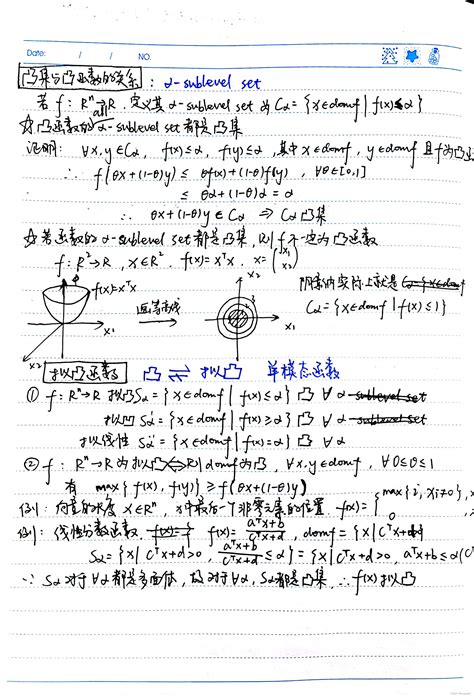 Date: / / NO.
凸集与凸函数的关系: α-sublevel set
若 f: Rⁿ→R. 定义其 α-sublevel set 为 Cα = {x∈domf | f(x)≤α}
☆凸函数的 all α-sublevel set 都是凸集
证明: ∀x,y∈Cα, f(x)≤α, f(y)≤α, 其中 x∈domf, y∈domf 且 f为凸
∴ f(θx+(1-θ)y) ≤ θf(x)+(1-θ)f(y), ∀θ∈[0,1]
≤ θα+(1-θ)α = α
∴ θx+(1-θ)y∈Cα ⇒ Cα凸集
☆若函数的 α-sublevel set 都是凸集, 则 f 不一定为凸函数
f: R²→R, x∈R². f(x)=xᵀx. x=(x₁ x₂)
f(x)=xᵀx
x₁
x₂
画等高线
x₂
x₁
阴影的实际上就是
Cα={x∈domf | f(x)≤1}
拟凸函数 凸 ⇌ 拟凸 单模态函数
① f: Rⁿ→R 拟凸 Sα={x∈domf | f(x)≤α} 凸 ∀α sublevel set
拟凹 Sα'={x∈domf | f(x)≥α} 凸 ∀α sublevel set
拟线性 Sα''={x∈domf | f(x)=α} 凸 ∀α
② f: Rⁿ→R 为拟凸⇔ domf为凸, ∀x,y∈domf, ∀0≤θ≤1
有 max{f(x), f(y)} ≥ f(θx+(1-θ)y)
例: 向量的长度 x∈Rⁿ, x中最后一个非零元素的位置. f(x)={max{i, xᵢ≠0},
例: 线性分数函数. f(x)= (aᵀx+b)/(cᵀx+d), domf={x | cᵀx+d>
Sα={x | cᵀx+d>0, (aᵀx+b)/(cᵀx+d)≤α}={x | cᵀx+d>0, aᵀx+b≤α(c
∵ Sα对于∀α都是多面体, 故对于∀α, Sα都是凸集. ∴ f(x)拟凸